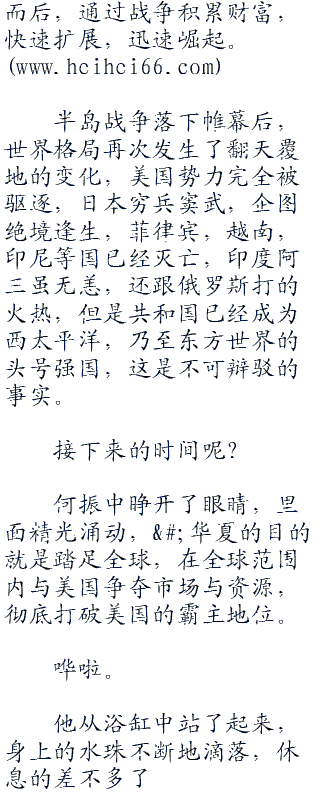 而后，通过战争积累财富，
快速扩展，迅速崛起。
(www.hcihci66.com)
半岛战争落下帷幕后，
世界格局再次发生了翻天覆
地的变化，美国势力完全被
驱逐，日本穷兵窦武，企图
绝境逢生，菲律宾，越南，
印尼等国已经灭亡，印度阿
三虽无恙，还跟俄罗斯打的
火热，但是共和国已经成为
西太平洋，乃至东方世界的
头号强国，这是不可辩驳的
事实。
接下来的时间呢?
何振中睁开了眼睛，里
面精光涌动，&#;华夏的目的
就是踏足全球，在全球范围
内与美国争夺市场与资源，
彻底打破美国的霸主地位。
哗啦。
他从浴缸中站了起来，
身上的水珠不断地滴落，休
息的差不多了